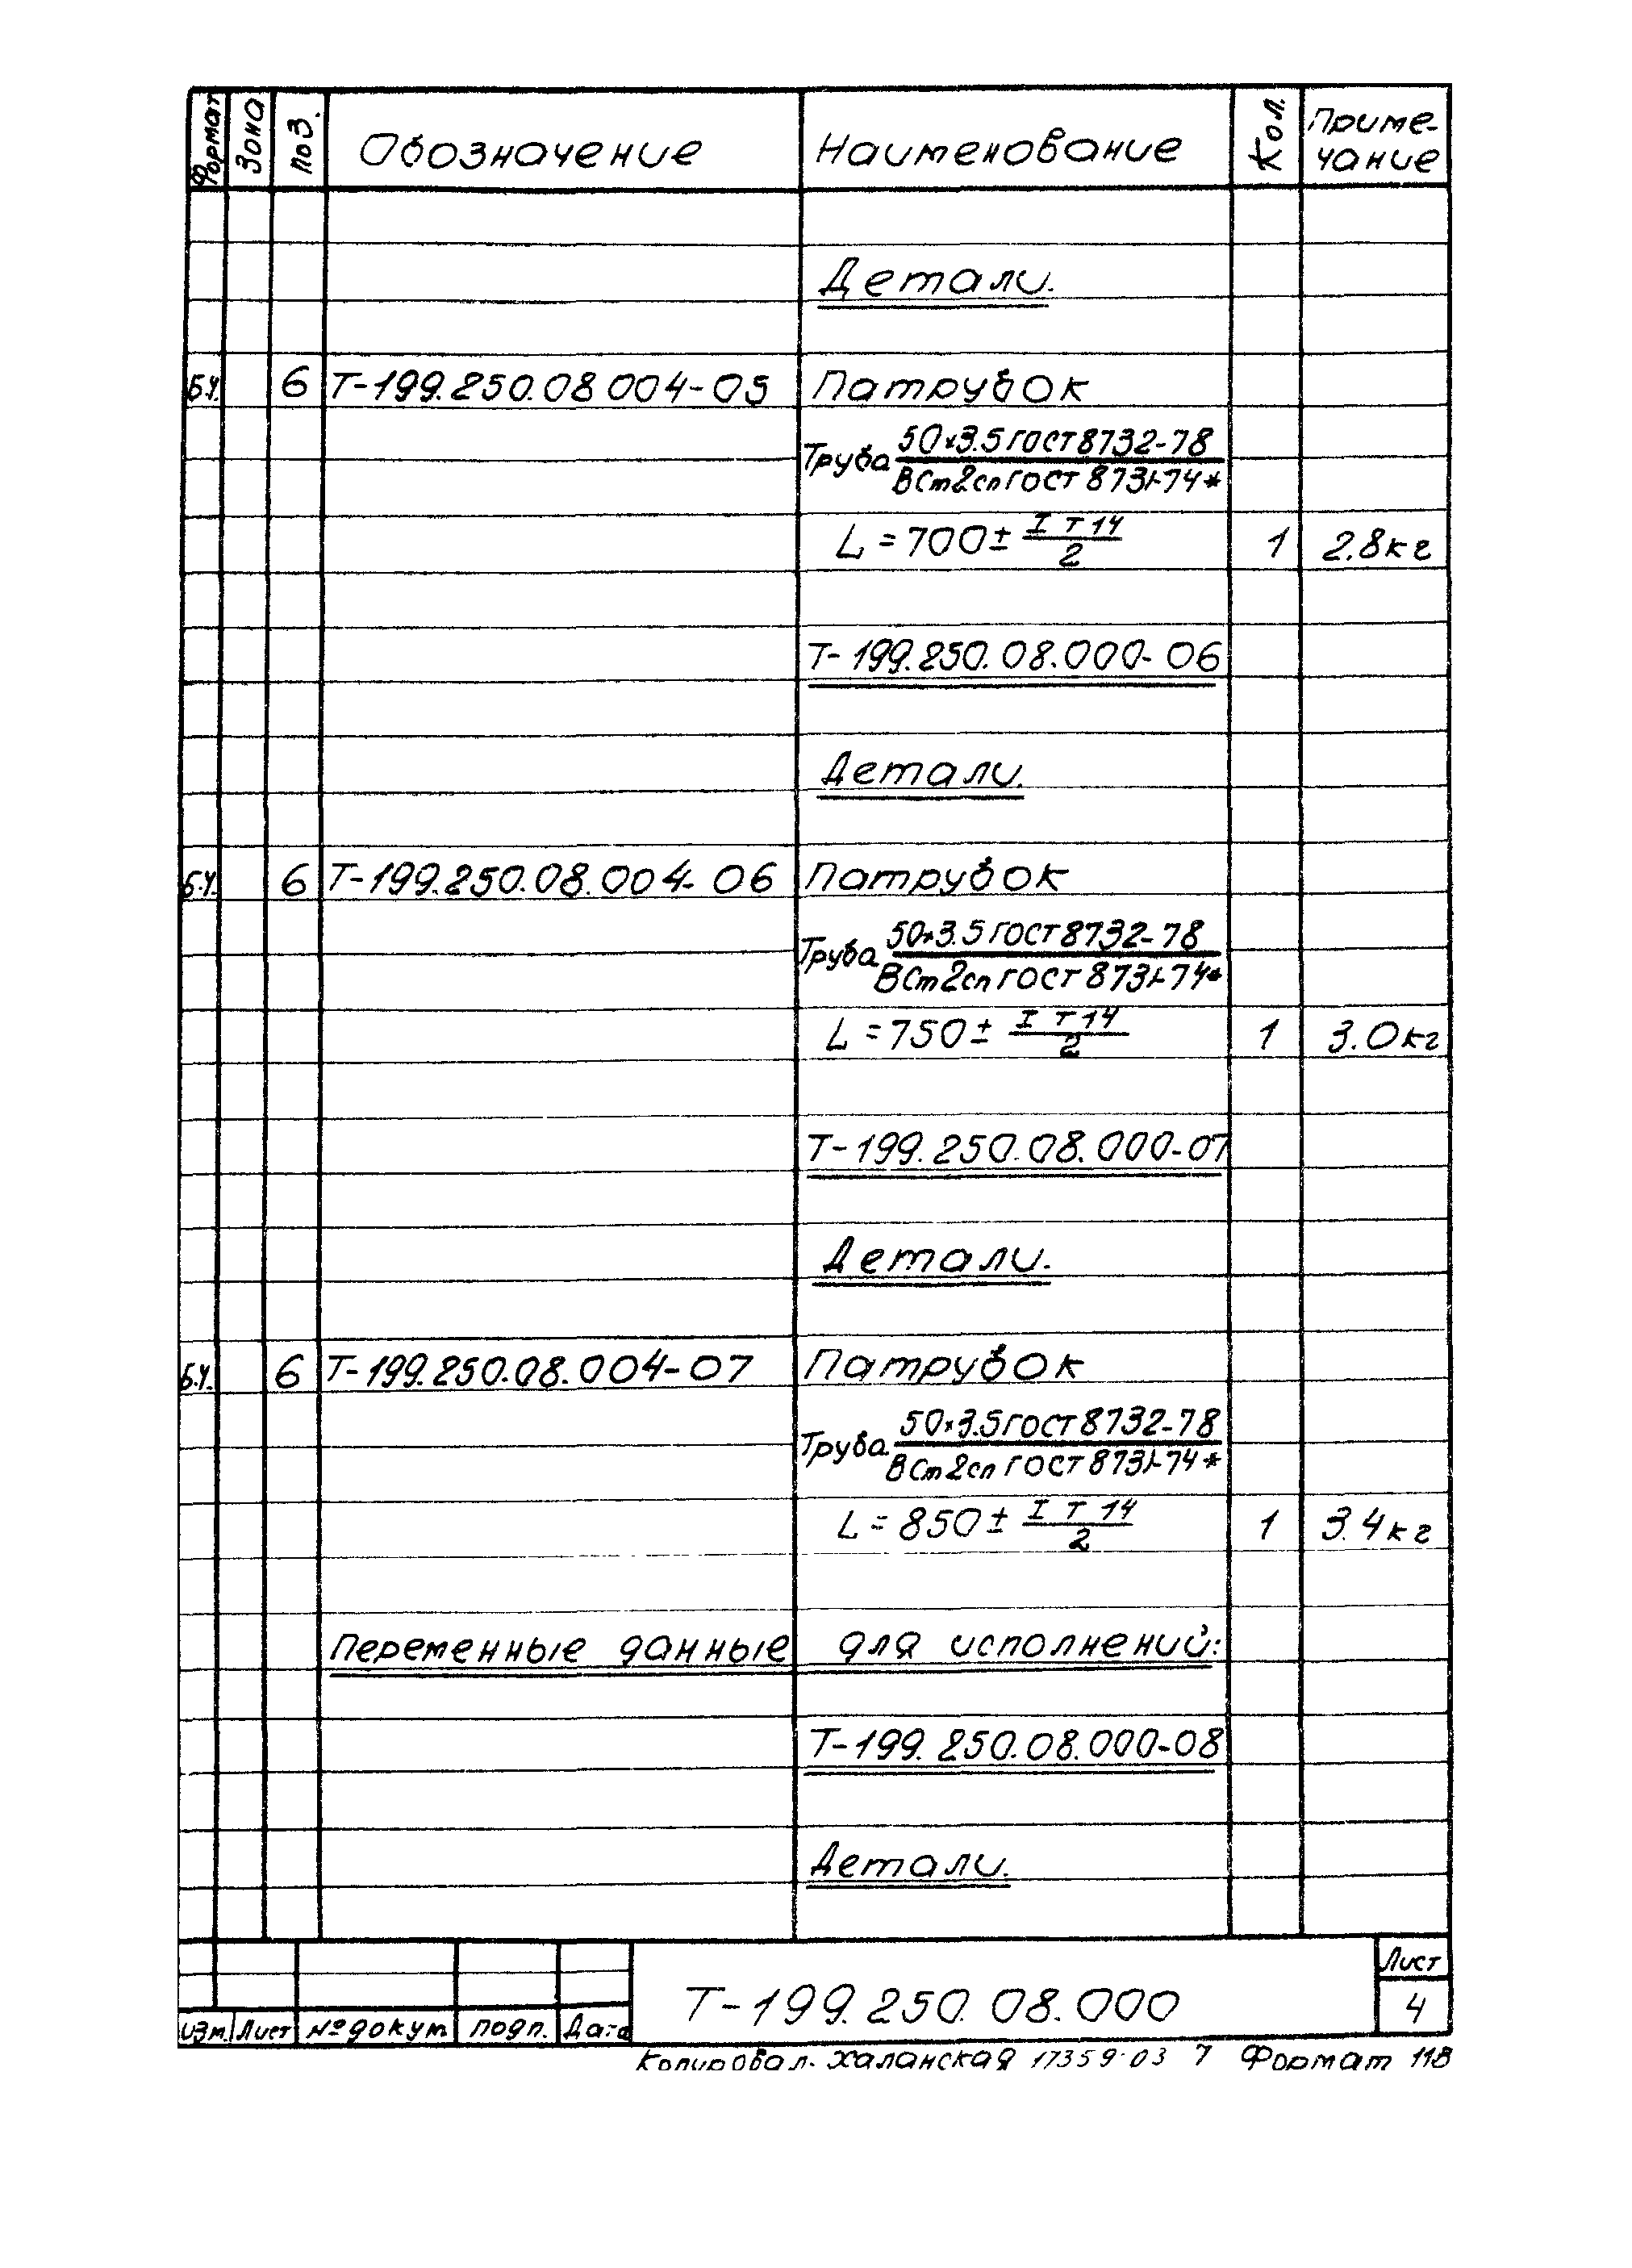 Формат Зона Поз. Обозначение Наименование Кол. Приме-
чание
Детали.
Б.Ч. 6 Т-199.250.08 004-05 Патрубок
Труба 50×3.5 ГОСТ 8732-78
ВСт2сп ГОСТ 8731-74*
L = 700 ± IT14 1 2.8 кг
2
Т-199.250.08.000-06
Детали.
Б.Ч. 6 Т-199.250.08.004-06 Патрубок
Труба 50×3.5 ГОСТ 8732-78
ВСт2сп ГОСТ 8731-74*
L = 750 ± IT14 1 3.0 кг
2
Т-199.250.08.000-07
Детали.
Б.Ч. 6 Т-199.250.08.004-07 Патрубок
Труба 50×3.5 ГОСТ 8732-78
ВСт2сп ГОСТ 8731-74*
L = 850 ± IT14 1 3.4 кг
2
Переменные данные для исполнений:
Т-199.250.08.000-08
Детали.
Т-199.250.08.000
Лист
4
Изм. Лист № докум. Подп. Дата
Копировал. Халанская 17359-03 7 Формат 11В